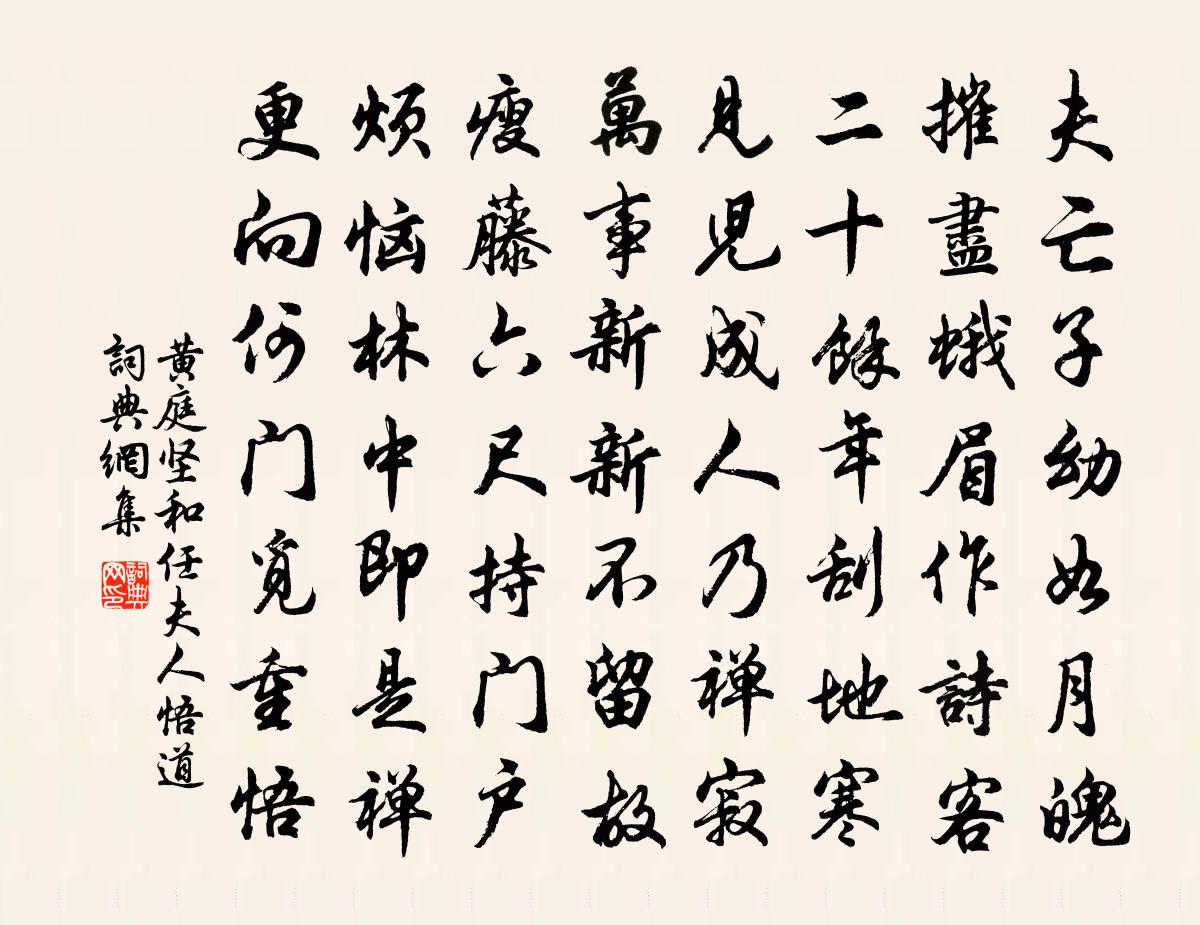 夫亡子幼如月魄
摧盡蛾眉作詩客
二十餘年刮地寒
見児成人乃禅寂
萬事新新不留故
瘦藤六尺持门户
烦恼林中即是禅
更向何门覓重悟
黄庭坚和任夫人悟道
詞典網集
詞典
网印